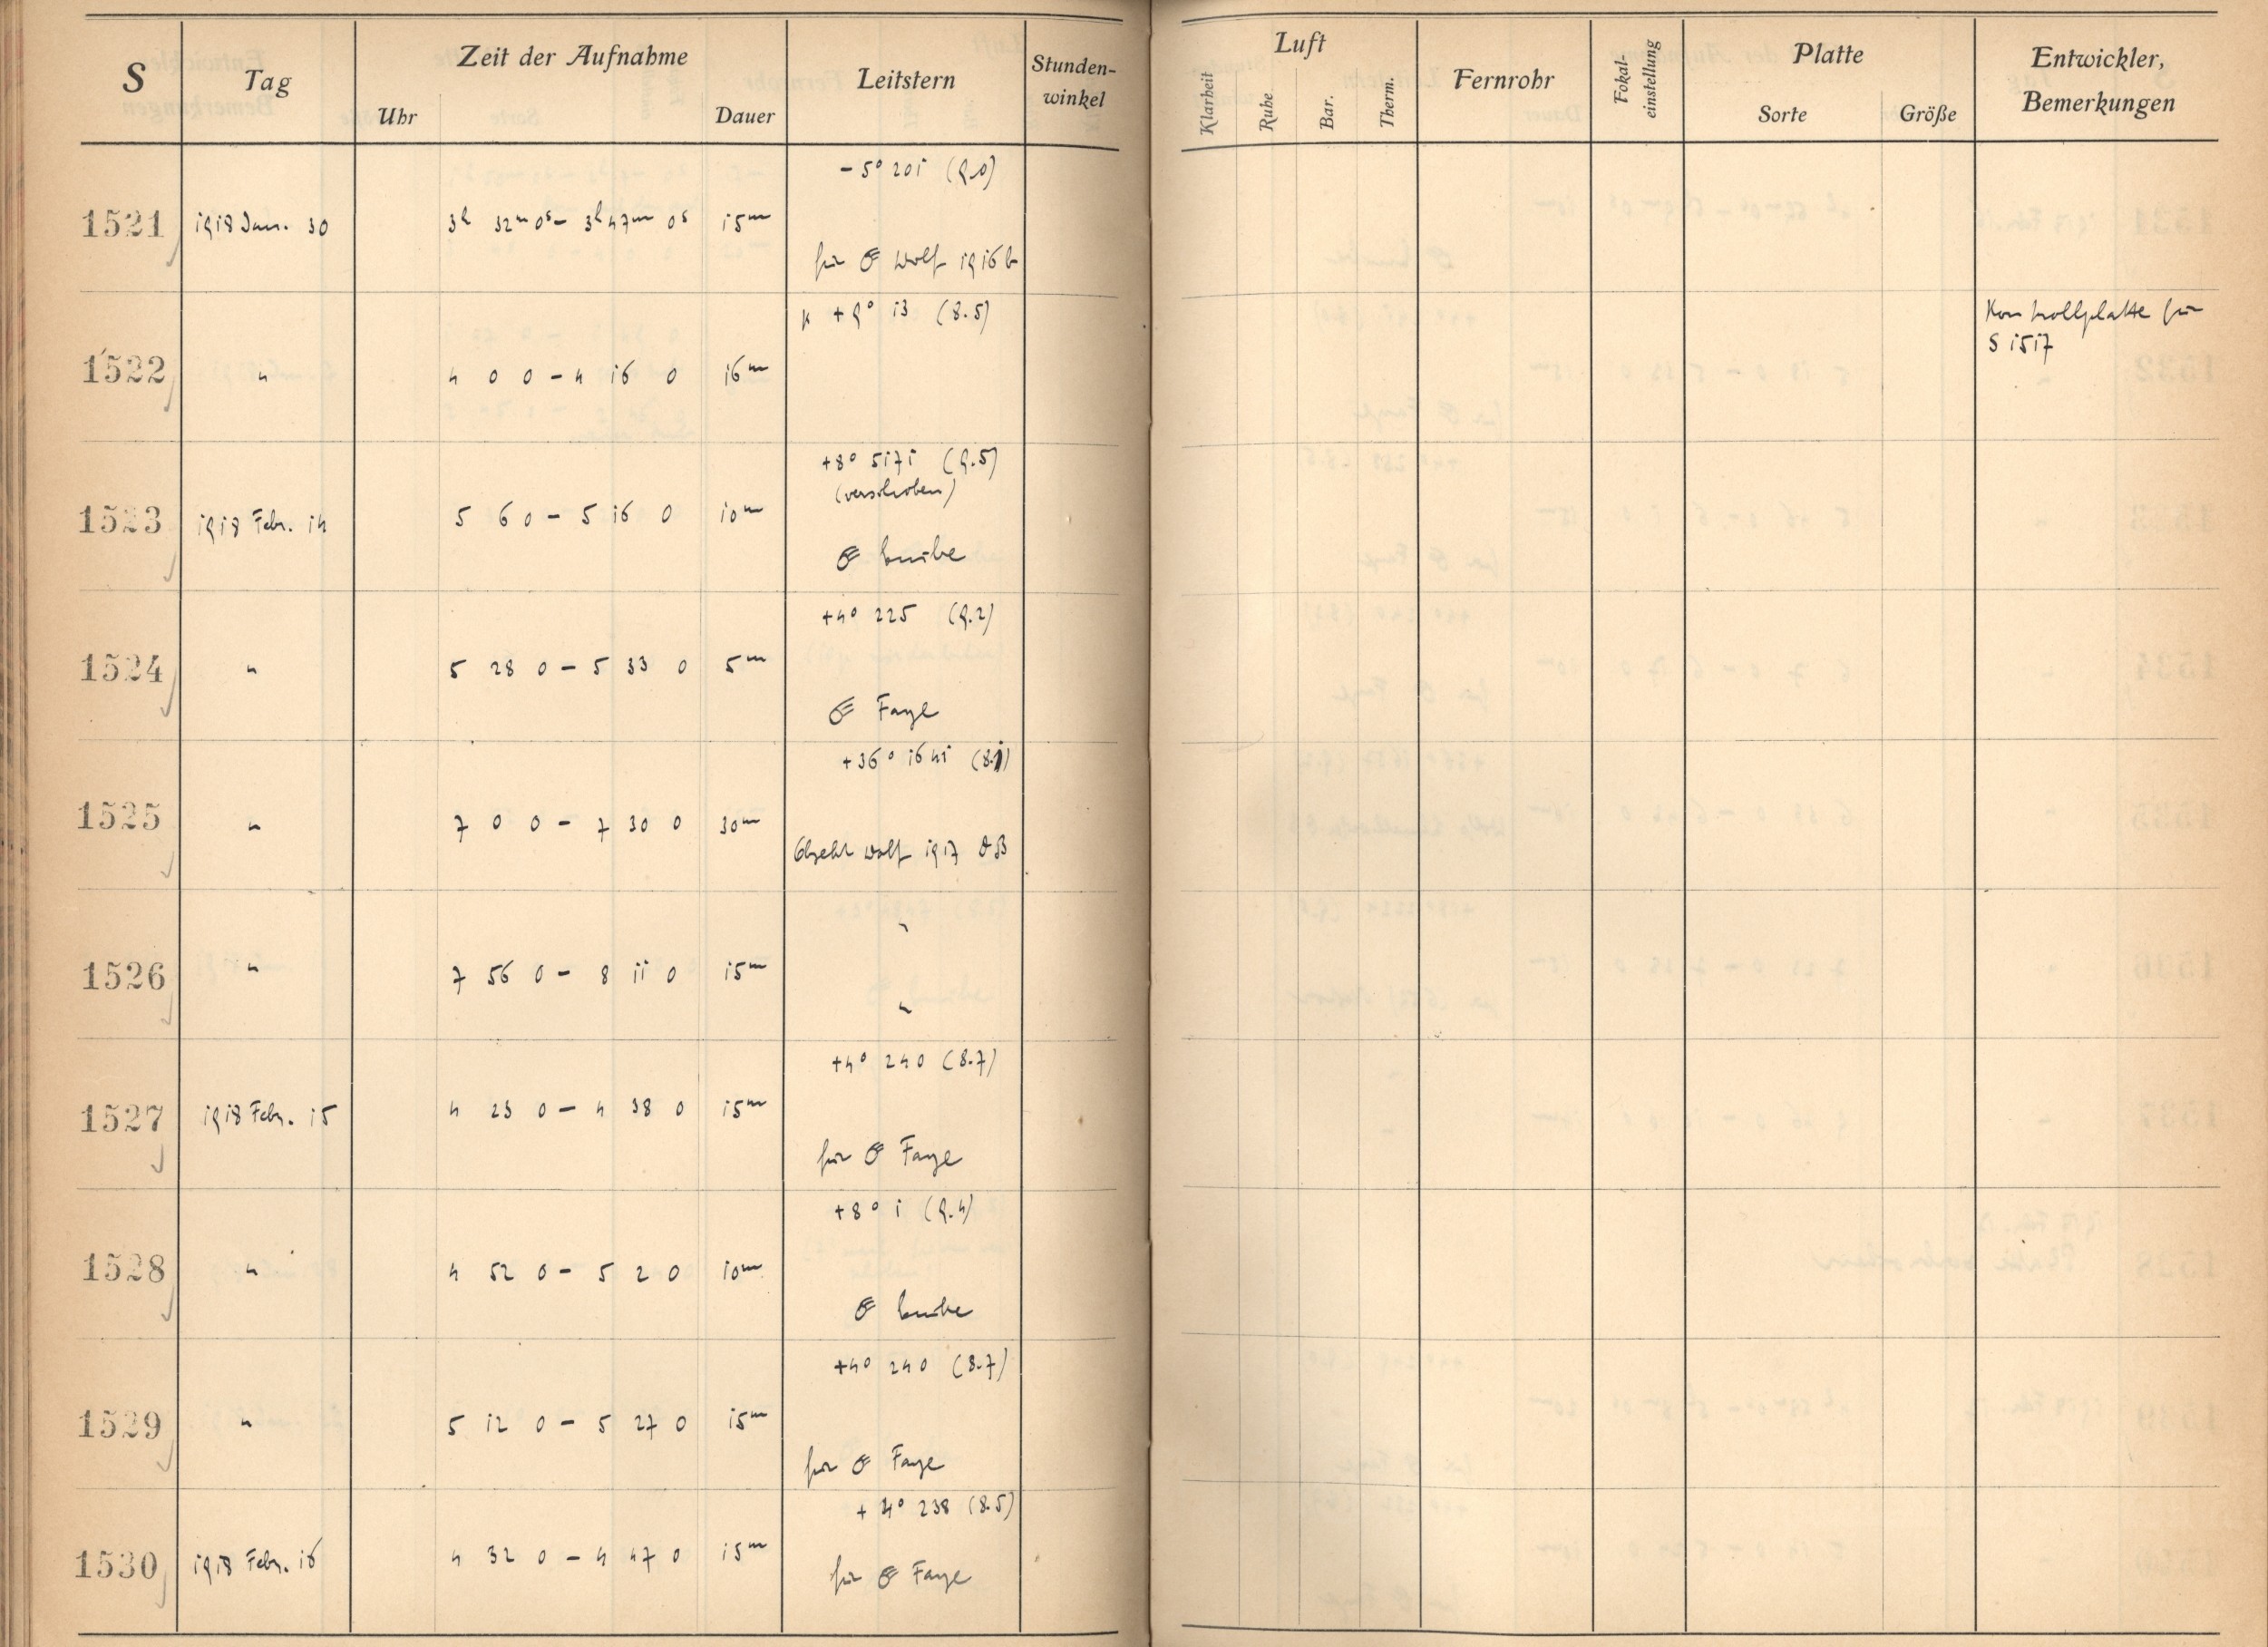 S Tag Zeit der Aufnahme Leitstern Stunden-winkel Luft Fernrohr Fokal-einstellung Platte Entwickler, Bemerkungen
Uhr Dauer Klarheit Ruhe Bar. Therm. Sorte Größe
-5° 201 (9.0)
1521 1918 Jan. 30 3h 32m 0s - 3h 47m 0s 15m
für ☄ Wolf 1916 b
+9° 13 (8.5) Kontrollplatte für
S 1517
1522 " 4 0 0 - 4 16 0 16m
+8° 5171 (9.5)
(verschoben)
1523 1918 Febr. 14 5 6 0 - 5 16 0 10m
☄ Encke
+4° 225 (9.2)
1524 " 5 28 0 - 5 33 0 5m
☄ Faye
+36° 1641 (8.1)
1525 " 7 0 0 - 7 30 0 30m
Objekt Wolf 1917
"
1526 " 7 56 0 - 8 11 0 15m
"
+4° 240 (8.7)
1527 1918 Febr. 15 4 23 0 - 4 38 0 15m
für ☄ Faye
+8° 1 (9.4)
1528 " 4 52 0 - 5 2 0 10m
☄ Encke
+4° 240 (8.7)
1529 " 5 12 0 - 5 27 0 15m
für ☄ Faye
+4° 238 (8.5)
1530 1918 Febr. 16 4 32 0 - 4 47 0 15m
für ☄ Faye